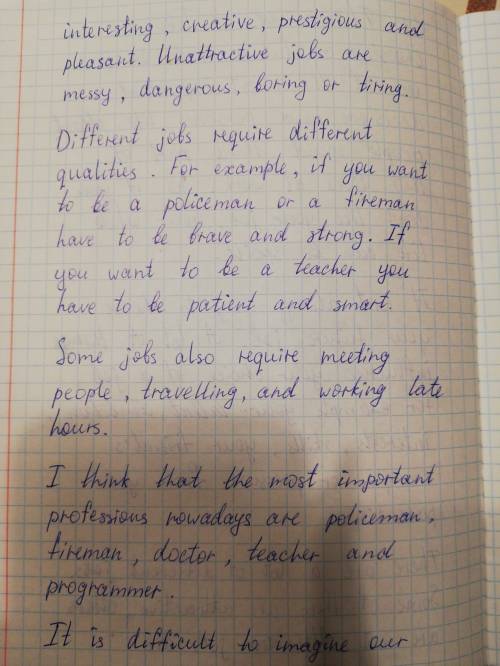 interesting, creative, prestigious and
pleasant. Unattractive jobs are
messy, dangerous, boring or tiring.
Different jobs require different
qualities. For example, if you want
to be a policeman or a fireman
have to be brave and strong. If
you want to be a teacher you
have to be patient and smart.
Some jobs also require meeting
people, travelling, and working late
hours.
I think that the most important
professions nowadays are policeman,
fireman, doctor, teacher and
programmer.
It is difficult to imagine our